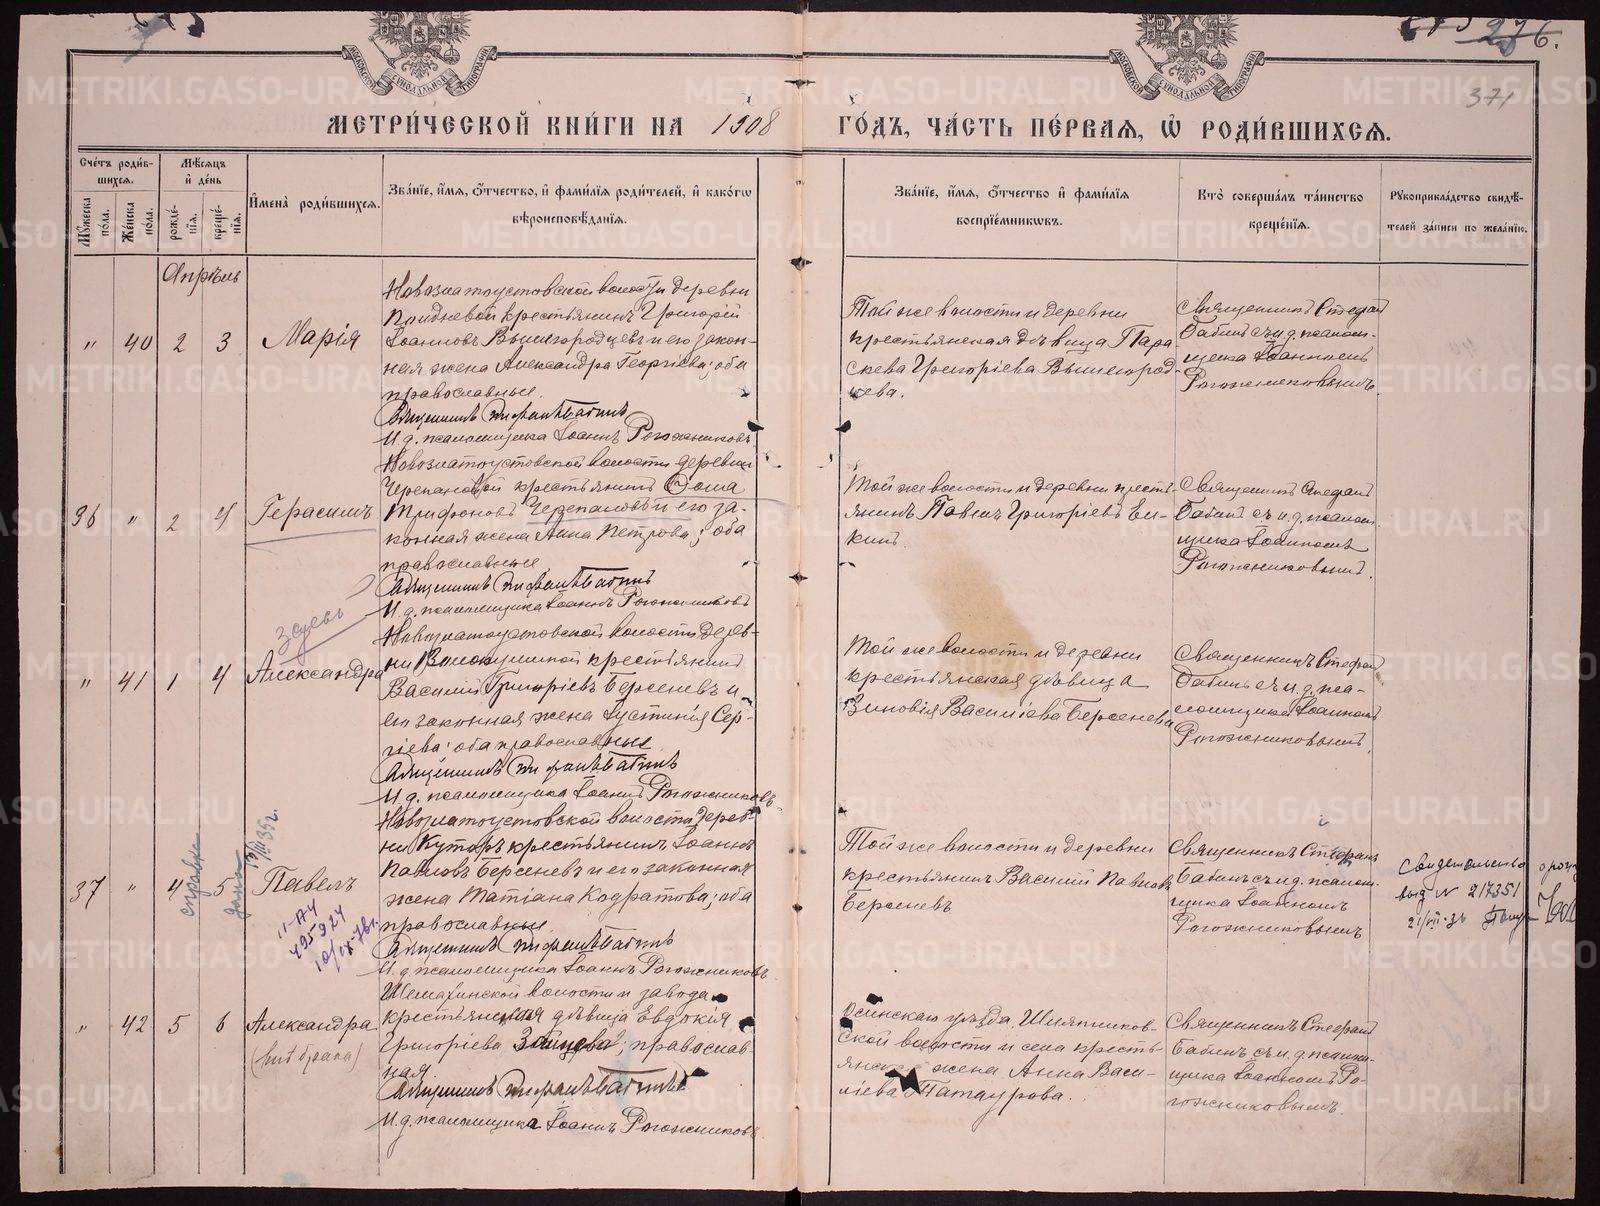 276.
371
МЕТРИЧЕСКОЙ КНИГИ НА 1908 ГОДЪ, ЧАСТЬ ПЕРВАЯ, Ѡ РОДИВШИХСЯ.
Счетъ родившихся.
Мужеска пола.
Женска пола.
Мѣсяцъ и день
рожденія.
крещенія.
Имена родившихся.
Званіе, имя, отчество, и фамилія родителей, и какогѡ
вѣроисповѣданія.
Званіе, имя, отчество и фамилія
воспріемникѡвъ.
Кто совершалъ таинство
крещенія.
Рукоприкладство свидѣ-
телей записи по желанію.
Апрѣль
" 40 2 3 Марія
Новозлатоустовской волости деревни
крестьянинъ Григорій
Іоанновъ Вышегородцевъ и его закон-
ная жена Александра Георгіева; оба
православные.
Священникъ Стефанъ Бабинъ
И. д. псаломщика Іоаннъ Рогожниковъ
Той же волости и деревни
крестьянская дѣвица Пара-
скева Григоріева Вышегород-
цева.
Священникъ Стефанъ
Бабинъ съ и. д. псалом-
щика Іоанномъ
Рогожниковымъ
36 " 2 4 Герасимъ
Новозлатоустовской волости деревни
Черепановой крестьянинъ Ѳома
Трифоновъ Черепановъ и его за-
конная жена Анна Петрова; оба
православные
Священникъ Стефанъ Бабинъ
И. д. псаломщика Іоаннъ Рогожниковъ
Той же волости и деревни кресть-
янинъ Павелъ Григоріевъ
Священникъ Стефанъ
Бабинъ съ и. д. псалом-
щика Іоанномъ
Рогожниковымъ.
здесь
" 41 1 4 Александра
Новозлатоустовской волости дерев-
ни крестьянинъ
Василій Григоріевъ Берсеневъ и
его законная жена Іустинія Сер-
гіева; оба православные
Священникъ Стефанъ Бабинъ
И. д. псаломщика Іоаннъ Рогожниковъ
Той же волости и деревни
крестьянская дѣвица
Зиновія Василіева Берсенева
Священникъ Стефанъ
Бабинъ съ и. д. пса-
ломщика Іоанномъ
Рогожниковымъ.
37 " 4 5 Павелъ
справка
дана
II-АЧ
495924
Новозлатоустовской волости дерев-
ни Куторъ крестьянинъ Іоаннъ
Павловъ Берсеневъ и его законная
жена Татіана Кодратова; оба
православные.
Священникъ Стефанъ Бабинъ
И. д. псаломщика Іоаннъ Рогожниковъ
Той же волости и деревни
крестьянинъ Василій Павловъ
Берсеневъ
Священникъ Стефанъ
Бабинъ съ и. д. псалом-
щика Іоанномъ
Рогожниковымъ
Свидетельство о рожд
выд № 217351
" 42 5 6 Александра
(внѣ брака)
Шемахинской волости и завода
крестьянская дѣвица Евдокія
Григоріева Зайцева; православ-
ная
Священникъ Стефанъ Бабинъ
И. д. псаломщика Іоаннъ Рогожниковъ
Осинскаго уѣзда,
волости и села кресть-
янская жена Анна Васи-
ліева Татаурова.
Священникъ Стефанъ
Бабинъ съ и. д. псалом-
щика Іоанномъ Ро-
гожниковымъ
METRIKI.GASO-URAL.RU